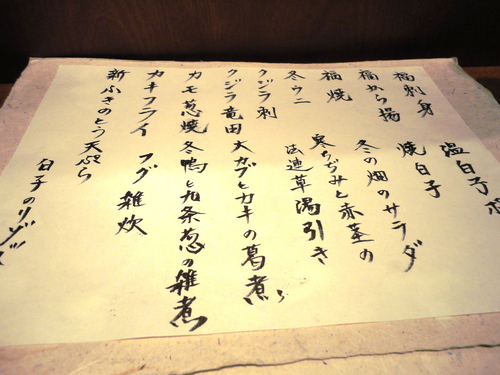 福刺身 温白子
福から揚 焼白子
福焼 冬の畑のサラダ
冬ウニ 寒ちぢみと赤茎の
法連草湯引き
クジラ刺
クジラ竜田 大カブとカキの葛煮
カモ葱焼 冬鴨と九条葱の雑煮
カキフライ フグ雑炊
新ふきのとう天ぷら
白子のリゾット